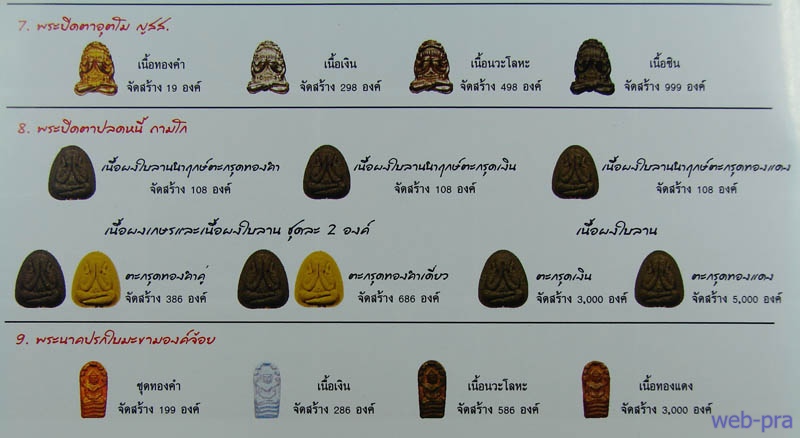 7. พระปิดตาอุตโม ญสส.
เนื้อทองคำ
จัดสร้าง 19 องค์
เนื้อเงิน
จัดสร้าง 298 องค์
เนื้อนวะโลหะ
จัดสร้าง 498 องค์
เนื้อชิน
จัดสร้าง 999 องค์
8. พระปิดตาปลดหนี้ ถามโก
เนื้อผงใบลานนำฤกษ์ตะกรุดทองคำ
จัดสร้าง 108 องค์
เนื้อผงใบลานนำฤกษ์ตะกรุดเงิน
จัดสร้าง 108 องค์
เนื้อผงใบลานนำฤกษ์ตะกรุดทองแดง
จัดสร้าง 108 องค์
เนื้อผงเกษรและเนื้อผงใบลาน ชุดละ 2 องค์
เนื้อผงใบลาน
ตะกรุดทองคำคู่
จัดสร้าง 386 องค์
ตะกรุดทองคำเดี่ยว
จัดสร้าง 686 องค์
ตะกรุดเงิน
จัดสร้าง 3,000 องค์
ตะกรุดทองแดง
จัดสร้าง 5,000 องค์
9. พระนาคปรกใบมะขามองค์จ้อย
ชุดทองคำ
จัดสร้าง 199 องค์
เนื้อเงิน
จัดสร้าง 286 องค์
เนื้อนวะโลหะ
จัดสร้าง 586 องค์
เนื้อทองแดง
จัดสร้าง 3,000 องค์
web-pra